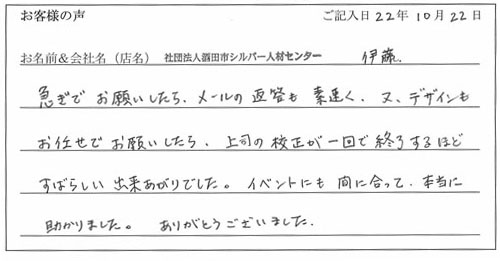 お客様の声 ご記入日 22年 10月 22日
お名前＆会社名（店名） 社団法人酒田市シルバー人材センター 伊藤.
急ぎで お願いしたら、メールの 返答も 素速く、又、デザインも
お任せで お願いしたら、上司の 校正が 一回で 終了するほど
すばらしい 出来あがりでした。イベントにも 間に合って、本当に
助かりました。 ありがとうございました.